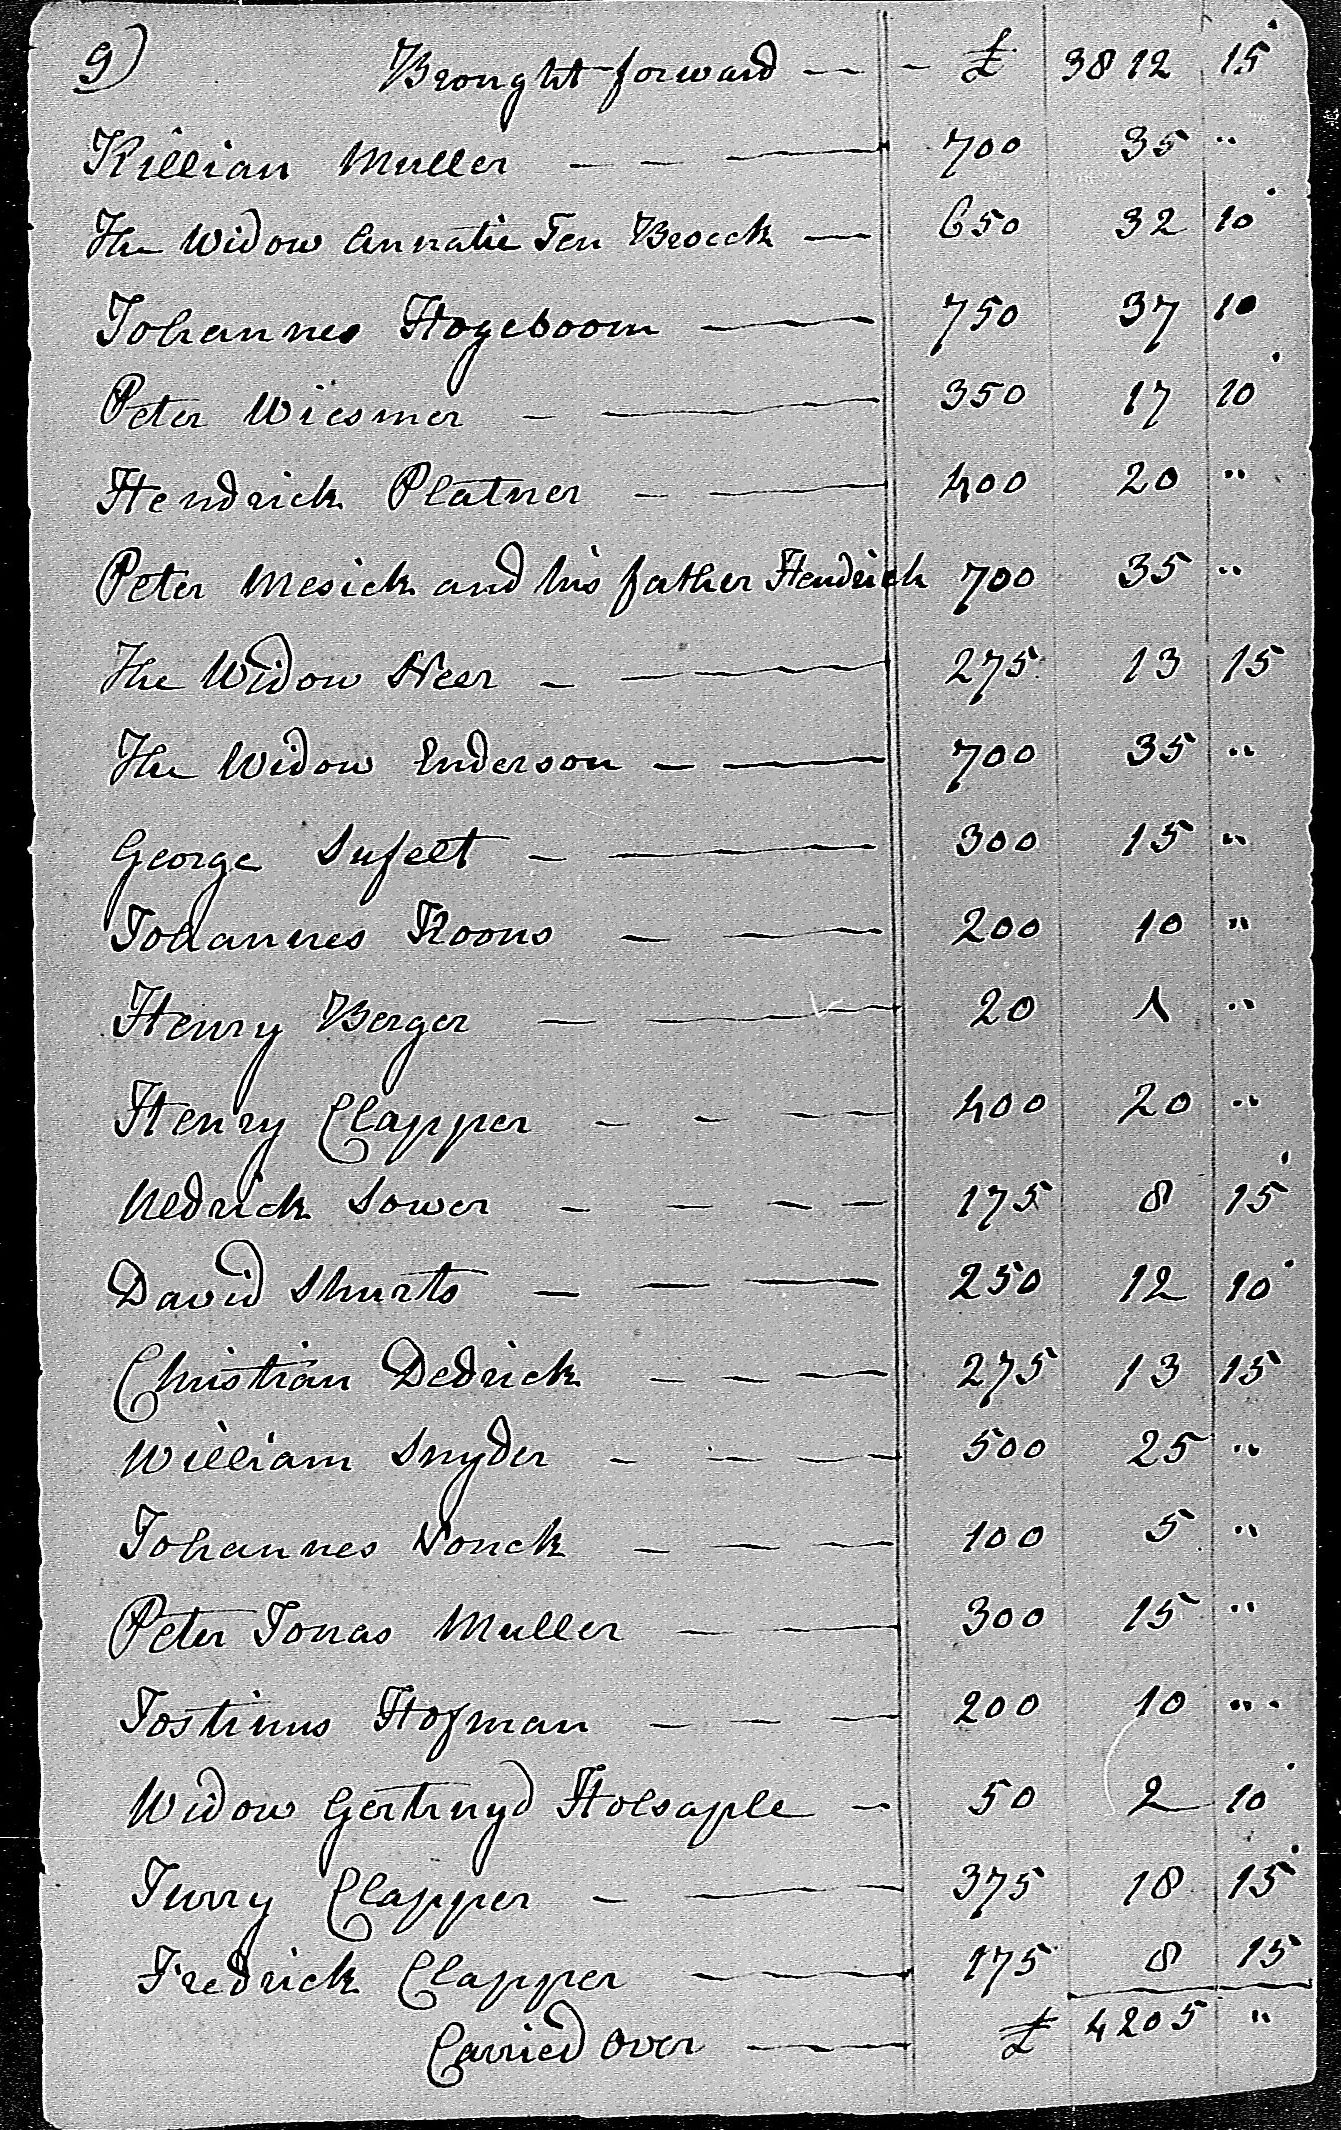 9) Brought forward — - £ 3812 15
Killian Muller — — — 700 35 "
The Widow Annatie Ten Broeck — 650 32 10
Johannes Hogeboom — — 750 37 10
Peter Wiesmer — — 350 17 10
Hendrick Platner — — 400 20 "
Peter Mesick and his father Hendrick 700 35 "
The Widow Neer — — — 275 13 15
The Widow Enderson — — 700 35 "
George Sufelt — — — 300 15 "
Johannes Koons — — 200 10 "
Henry Berger — — — 20 1 "
Henry Clapper — - — — 400 20 "
Nedrick Sower — — — — 175 8 15
David Shurts — — — 250 12 10
Christian Dedrick — — — 275 13 15
William Snyder — - — — 500 25 "
Johannes Vonck — — — 100 5 "
Peter Jonas Muller — — — 300 15 "
Jostinus Hofman — — — 200 10 "
Widow Gertruyd Holsaple — 50 2 10
Jurry Clapper — — — 375 18 15
Fredrick Clapper — — — 175 8 15
Carried over — — — £ 4205 "